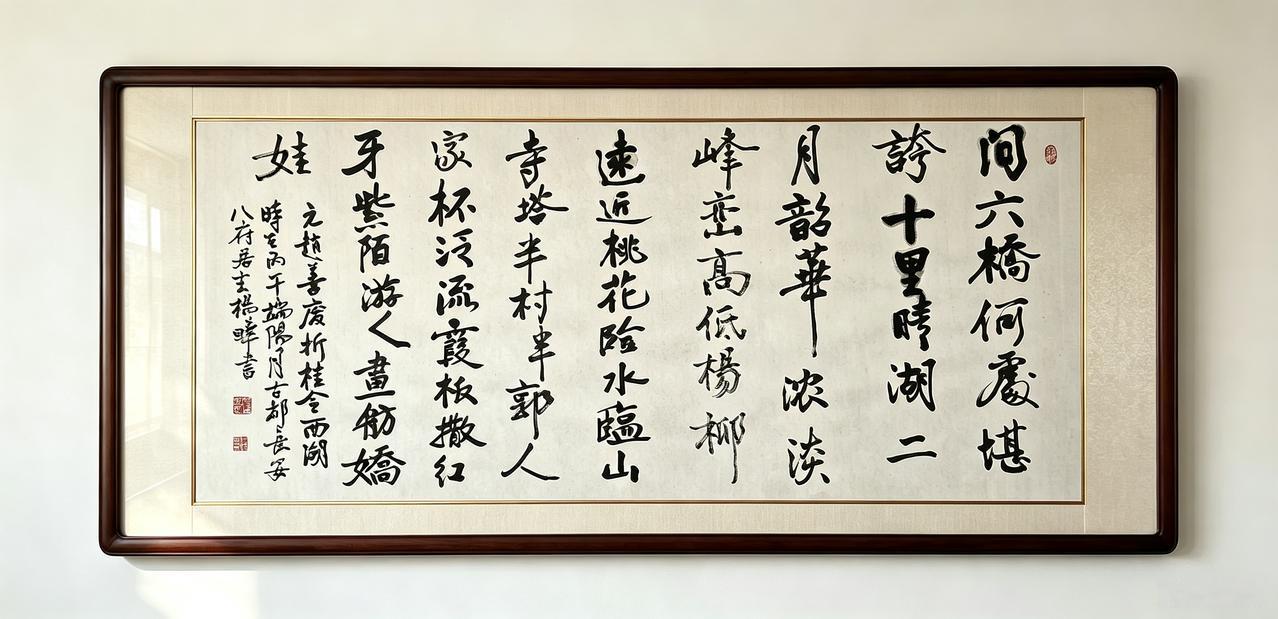 问六橋何處堪
誇十里晴湖二
月韶華浓淡
峰巒高低楊柳
遠近桃花临水臨山
寺塔半村半郭人
家杯泛流霞板撒红
牙紫陌游人畫舫嬌
娃
元趙善慶折桂令西湖
時在丙午端陽月古都長安
八府居主楊曄書